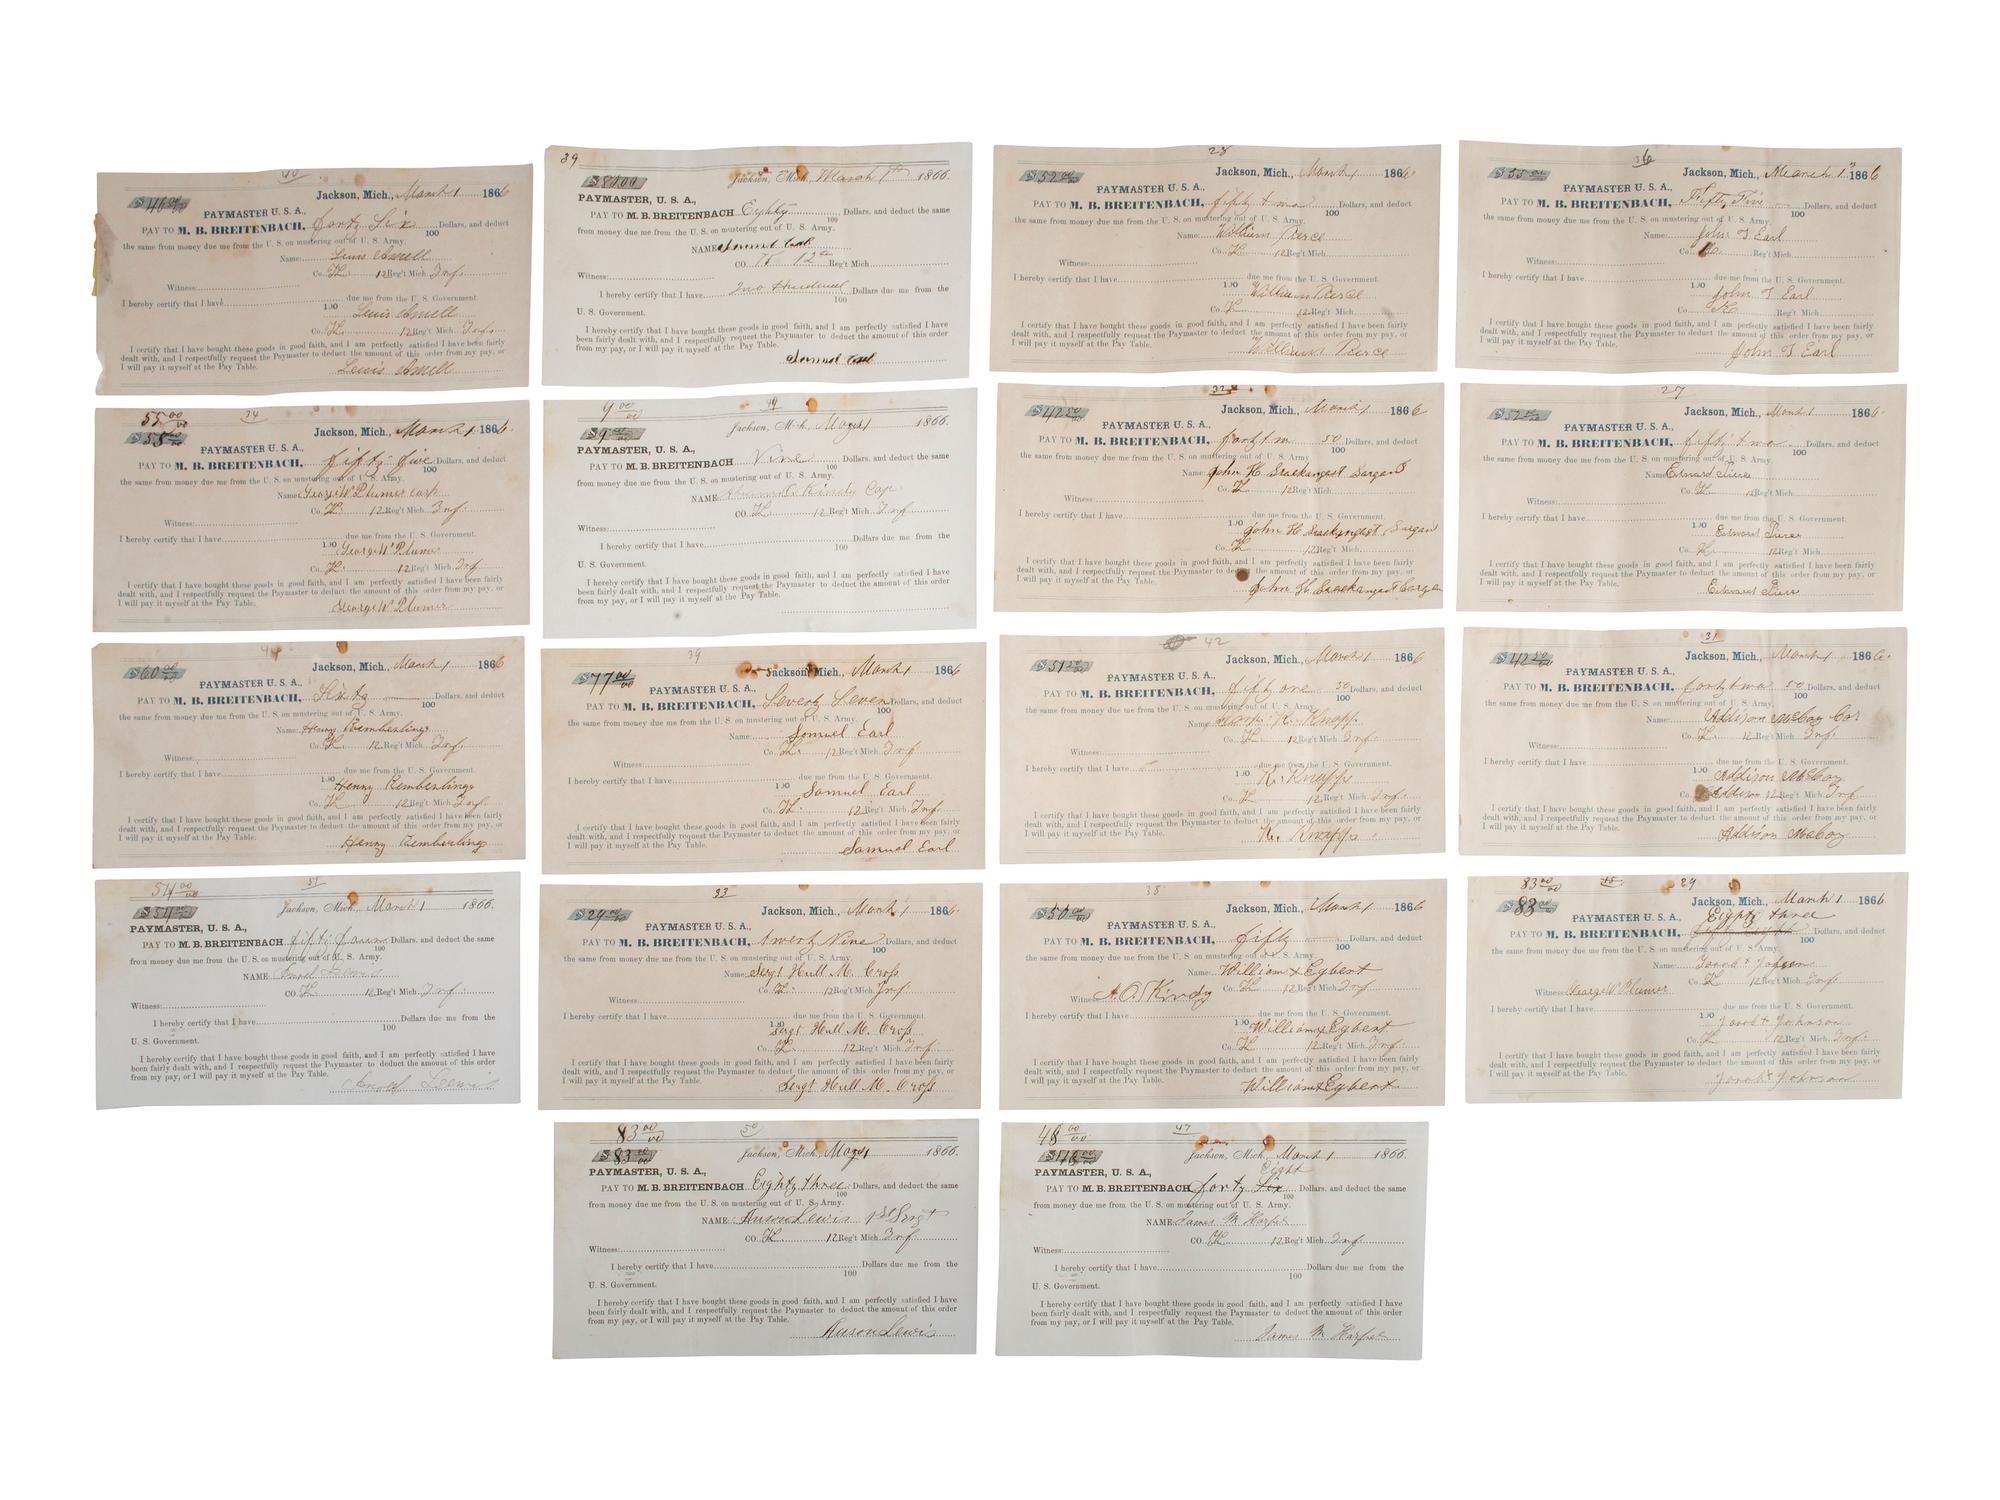 40
$46 00/00 Jackson, Mich., March 1 1866
PAYMASTER U. S. A.,
PAY TO M. B. BREITENBACH, forty Six 100 Dollars, and deduct
the same from money due me from the U. S. on mustering out of U. S. Army.
Name: Lewis
Co. K. 12 Reg't Mich. Inf.
Witness:
I hereby certify that I have 100 due me from the U. S. Government.
Lewis
Co. K. 12 Reg't Mich. Inf.
I certify that I have bought these goods in good faith, and I am perfectly satisfied I have been fairly
dealt with, and I respectfully request the Paymaster to deduct the amount of this order from my pay, or
I will pay it myself at the Pay Table.
Lewis
39
$80.00 Jackson, Mich. March 1st 1866.
PAYMASTER, U. S. A.,
PAY TO M. B. BREITENBACH Eighty 100 Dollars, and deduct the same
from money due me from the U. S. on mustering out of U. S. Army.
NAME Samuel
CO. K 12th Reg't Mich
Witness:
I hereby certify that I have Two Hundred 100 Dollars due me from the
U. S. Government.
I hereby certify that I have bought these goods in good faith, and I am perfectly satisfied I have
been fairly dealt with, and I respectfully request the Paymaster to deduct the amount of this order
from my pay, or I will pay it myself at the Pay Table.
Samuel
28
$52 00/00 Jackson, Mich., March 1 1866
PAYMASTER U. S. A.,
PAY TO M. B. BREITENBACH, fifty two 100 Dollars, and deduct
the same from money due me from the U. S. on mustering out of U. S. Army.
Name: William Pierce
Co. K. 12 Reg't Mich
Witness:
I hereby certify that I have 100 due me from the U. S. Government.
William Pierce
Co. K 12 Reg't Mich.
I certify that I have bought these goods in good faith, and I am perfectly satisfied I have been fairly
dealt with, and I respectfully request the Paymaster to deduct the amount of this order from my pay, or
I will pay it myself at the Pay Table.
William Pierce
36
$55 00 Jackson, Mich., March 1" 1866
PAYMASTER U. S. A.,
PAY TO M. B. BREITENBACH, Fifty Five 100 Dollars, and deduct
the same from money due me from the U. S. on mustering out of U. S. Army.
Name: John T Earl
Co. K Reg't Mich
Witness:
I hereby certify that I have 100 due me from the U. S. Government.
John T Earl
Co. K Reg't Mich.
I certify that I have bought these goods in good faith, and I am perfectly satisfied I have been fairly
dealt with, and I respectfully request the Paymaster to deduct the amount of this order from my pay, or
I will pay it myself at the Pay Table.
John T Earl
55 00/00 34
$55 00/00 Jackson, Mich., March 1 1866.
PAYMASTER U. S. A.,
PAY TO M. B. BREITENBACH, fifty five 100 Dollars, and deduct
the same from money due me from the U. S. on mustering out of U. S. Army.
Name: George W Plumer Corp
Co. K. 12 Reg't Mich Inf.
Witness:
I hereby certify that I have 100 due me from the U. S. Government.
George W Plumer
Co. K. 12 Reg't Mich. Inf.
I certify that I have bought these goods in good faith, and I am perfectly satisfied I have been fairly
dealt with, and I respectfully request the Paymaster to deduct the amount of this order from my pay, or
I will pay it myself at the Pay Table.
George W Plumer
9 00/00 49
$9 00/00 Jackson, Mich. March 1 1866.
PAYMASTER, U. S. A.,
PAY TO M. B. BREITENBACH Nine 100 Dollars, and deduct the same
from money due me from the U. S. on mustering out of U. S. Army.
NAME O Kindy Cap
CO. K. 12 Reg't Mich Inf
Witness:
I hereby certify that I have 100 Dollars due me from the
U. S. Government.
I hereby certify that I have bought these goods in good faith, and I am perfectly satisfied I have
been fairly dealt with, and I respectfully request the Paymaster to deduct the amount of this order
from my pay, or I will pay it myself at the Pay Table.
32
$42 50/00 Jackson, Mich., March 1 1866
PAYMASTER U. S. A.,
PAY TO M. B. BREITENBACH, 50 100 Dollars, and deduct
the same from money due me from the U. S. on mustering out of U. S. Army.
Name: John H
Co. K 12 Reg't Mich
Witness:
I hereby certify that I have 100 due me from the U. S. Government.
John H
Co. K 12 Reg't Mich.
I certify that I have bought these goods in good faith, and I am perfectly satisfied I have been fairly
dealt with, and I respectfully request the Paymaster to deduct the amount of this order from my pay, or
I will pay it myself at the Pay Table.
John H
27
$52 00/00 Jackson, Mich., March 1 1866
PAYMASTER U. S. A.,
PAY TO M. B. BREITENBACH, fifty two 100 Dollars, and deduct
the same from money due me from the U. S. on mustering out of U. S. Army.
Name: Edward
Co. K. 12 Reg't Mich
Witness:
I hereby certify that I have 100 due me from the U. S. Government.
Edward
Co. K. 12 Reg't Mich
I certify that I have bought these goods in good faith, and I am perfectly satisfied I have been fairly
dealt with, and I respectfully request the Paymaster to deduct the amount of this order from my pay, or
I will pay it myself at the Pay Table.
Edward
44
$60 00/00 Jackson, Mich., March 1 1866
PAYMASTER U. S. A.,
PAY TO M. B. BREITENBACH, Sixty 100 Dollars, and deduct
the same from money due me from the U. S. on mustering out of U. S. Army.
Name: Henry Remberling
Co. K. 12 Reg't Mich Inf.
Witness:
I hereby certify that I have 100 due me from the U. S. Government.
Henry Remberling
Co. K 12 Reg't Mich. Inf.
I certify that I have bought these goods in good faith, and I am perfectly satisfied I have been fairly
dealt with, and I respectfully request the Paymaster to deduct the amount of this order from my pay, or
I will pay it myself at the Pay Table.
Henry Remberling
39
$77 00/00 Jackson, Mich., March 1 1866
PAYMASTER U. S. A.,
PAY TO M. B. BREITENBACH, Seventy Seven 100 Dollars, and deduct
the same from money due me from the U. S. on mustering out of U. S. Army.
Name: Samuel Earl
Co. K. 12 Reg't Mich Inf
Witness:
I hereby certify that I have 100 due me from the U. S. Government.
Samuel Earl
Co. K. 12 Reg't Mich. Inf.
I certify that I have bought these goods in good faith, and I am perfectly satisfied I have been fairly
dealt with, and I respectfully request the Paymaster to deduct the amount of this order from my pay, or
I will pay it myself at the Pay Table.
Samuel Earl
42
$51 50/00 Jackson, Mich., March 1 1866
PAYMASTER U. S. A.,
PAY TO M. B. BREITENBACH, fifty one 50 100 Dollars, and deduct
the same from money due me from the U. S. on mustering out of U. S. Army.
Name: K. Knapp
Co. K. 12 Reg't Mich Inf.
Witness:
I hereby certify that I have 100 due me from the U. S. Government.
K. Knapp
Co. K 12 Reg't Mich. Inf.
I certify that I have bought these goods in good faith, and I am perfectly satisfied I have been fairly
dealt with, and I respectfully request the Paymaster to deduct the amount of this order from my pay, or
I will pay it myself at the Pay Table.
K. Knapp
31
$42 50/00 Jackson, Mich., March 1 1866
PAYMASTER U. S. A.,
PAY TO M. B. BREITENBACH, forty two 50 100 Dollars, and deduct
the same from money due me from the U. S. on mustering out of U. S. Army.
Name: Addison McCoy Cor
Co. K. 12 Reg't Mich Inf.
Witness:
I hereby certify that I have 100 due me from the U. S. Government.
Addison McCoy
Co. Addison 12 Reg't Mich. Inf.
I certify that I have bought these goods in good faith, and I am perfectly satisfied I have been fairly
dealt with, and I respectfully request the Paymaster to deduct the amount of this order from my pay, or
I will pay it myself at the Pay Table.
Addison McCoy
54 00/00 51
$54 00/00 Jackson, Mich. March 1 1866.
PAYMASTER, U. S. A.,
PAY TO M. B. BREITENBACH fifty four 100 Dollars, and deduct the same
from money due me from the U. S. on mustering out of U. S. Army.
NAME Lewis
CO. K. 12 Reg't Mich. Inf.
Witness:
I hereby certify that I have 100 Dollars due me from the
U. S. Government.
I hereby certify that I have bought these goods in good faith, and I am perfectly satisfied I have
been fairly dealt with, and I respectfully request the Paymaster to deduct the amount of this order
from my pay, or I will pay it myself at the Pay Table.
Lewis
33
$29 00/00 Jackson, Mich., March 1 1866.
PAYMASTER U. S. A.,
PAY TO M. B. BREITENBACH, twenty Nine 100 Dollars, and deduct
the same from money due me from the U. S. on mustering out of U. S. Army.
Name: Sergt Hull M. Cross
Co. K. 12 Reg't Mich Inf.
Witness:
I hereby certify that I have 100 due me from the U. S. Government.
Sergt Hull M. Cross
Co. K. 12 Reg't Mich. Inf.
I certify that I have bought these goods in good faith, and I am perfectly satisfied I have been fairly
dealt with, and I respectfully request the Paymaster to deduct the amount of this order from my pay, or
I will pay it myself at the Pay Table.
Sergt Hull M. Cross
38
$50 00/00 Jackson, Mich., March 1 1866
PAYMASTER U. S. A.,
PAY TO M. B. BREITENBACH, fifty 100 Dollars, and deduct
the same from money due me from the U. S. on mustering out of U. S. Army.
Name: William x Egbert
Co. K 12 Reg't Mich Inf
Witness: A. O. Kindy
I hereby certify that I have 100 due me from the U. S. Government.
William x Egbert
Co. K. 12 Reg't Mich. Inf.
I certify that I have bought these goods in good faith, and I am perfectly satisfied I have been fairly
dealt with, and I respectfully request the Paymaster to deduct the amount of this order from my pay, or
I will pay it myself at the Pay Table.
William x Egbert
83 00/00 29
$83 00 Jackson, Mich., March 1 1866
PAYMASTER U. S. A., Eighty three
PAY TO M. B. BREITENBACH, 100 Dollars, and deduct
the same from money due me from the U. S. on mustering out of U. S. Army.
Name: Jacob x Johnson
Co. K 12 Reg't Mich Inf.
Witness: George W Plumer
I hereby certify that I have 100 due me from the U. S. Government.
Jacob x Johnson
Co. K. 12 Reg't Mich. Inf.
I certify that I have bought these goods in good faith, and I am perfectly satisfied I have been fairly
dealt with, and I respectfully request the Paymaster to deduct the amount of this order from my pay, or
I will pay it myself at the Pay Table.
Jacob x Johnson
83 00/00 50
$83 00/00 Jackson, Mich. March 1 1866.
PAYMASTER, U. S. A.,
PAY TO M. B. BREITENBACH Eighty three 100 Dollars, and deduct the same
from money due me from the U. S. on mustering out of U. S. Army.
NAME Anson Lewis 1st Sergt
CO. K. 12 Reg't Mich. Inf.
Witness:
I hereby certify that I have 100 Dollars due me from the
U. S. Government.
I hereby certify that I have bought these goods in good faith, and I am perfectly satisfied I have
been fairly dealt with, and I respectfully request the Paymaster to deduct the amount of this order
from my pay, or I will pay it myself at the Pay Table.
Anson Lewis
48 00/00 47
Jackson, Mich. March 1 1866.
PAYMASTER, U. S. A., Eight
PAY TO M. B. BREITENBACH forty Six 100 Dollars, and deduct the same
from money due me from the U. S. on mustering out of U. S. Army.
NAME James M Harper
CO. K. 12 Reg't Mich. Inf.
Witness:
I hereby certify that I have 100 Dollars due me from the
U. S. Government.
I hereby certify that I have bought these goods in good faith, and I am perfectly satisfied I have
been fairly dealt with, and I respectfully request the Paymaster to deduct the amount of this order
from my pay, or I will pay it myself at the Pay Table.
James M Harper